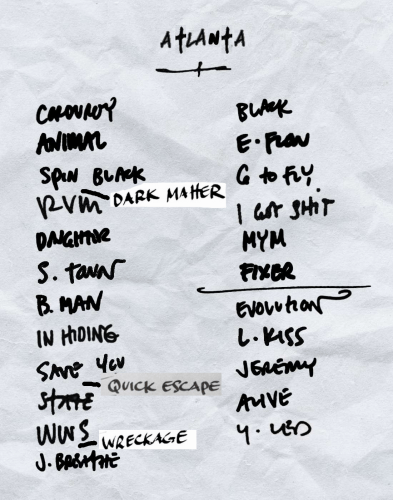 ATLANTA
CORDUROY
ANIMAL
SPIN BLACK
RVM
DARK MATTER
DAUGHTER
S. TOWN
B. MAN
IN HIDING
SAVE YOU
QUICK ESCAPE
STATE
WWS
WRECKAGE
J. BREATHE
BLACK
E. FLOW
G to FLY
I GOT SHIT
MYM
FIXER
EVOLUTION
L. KISS
JEREMY
ALIVE
Y. LED